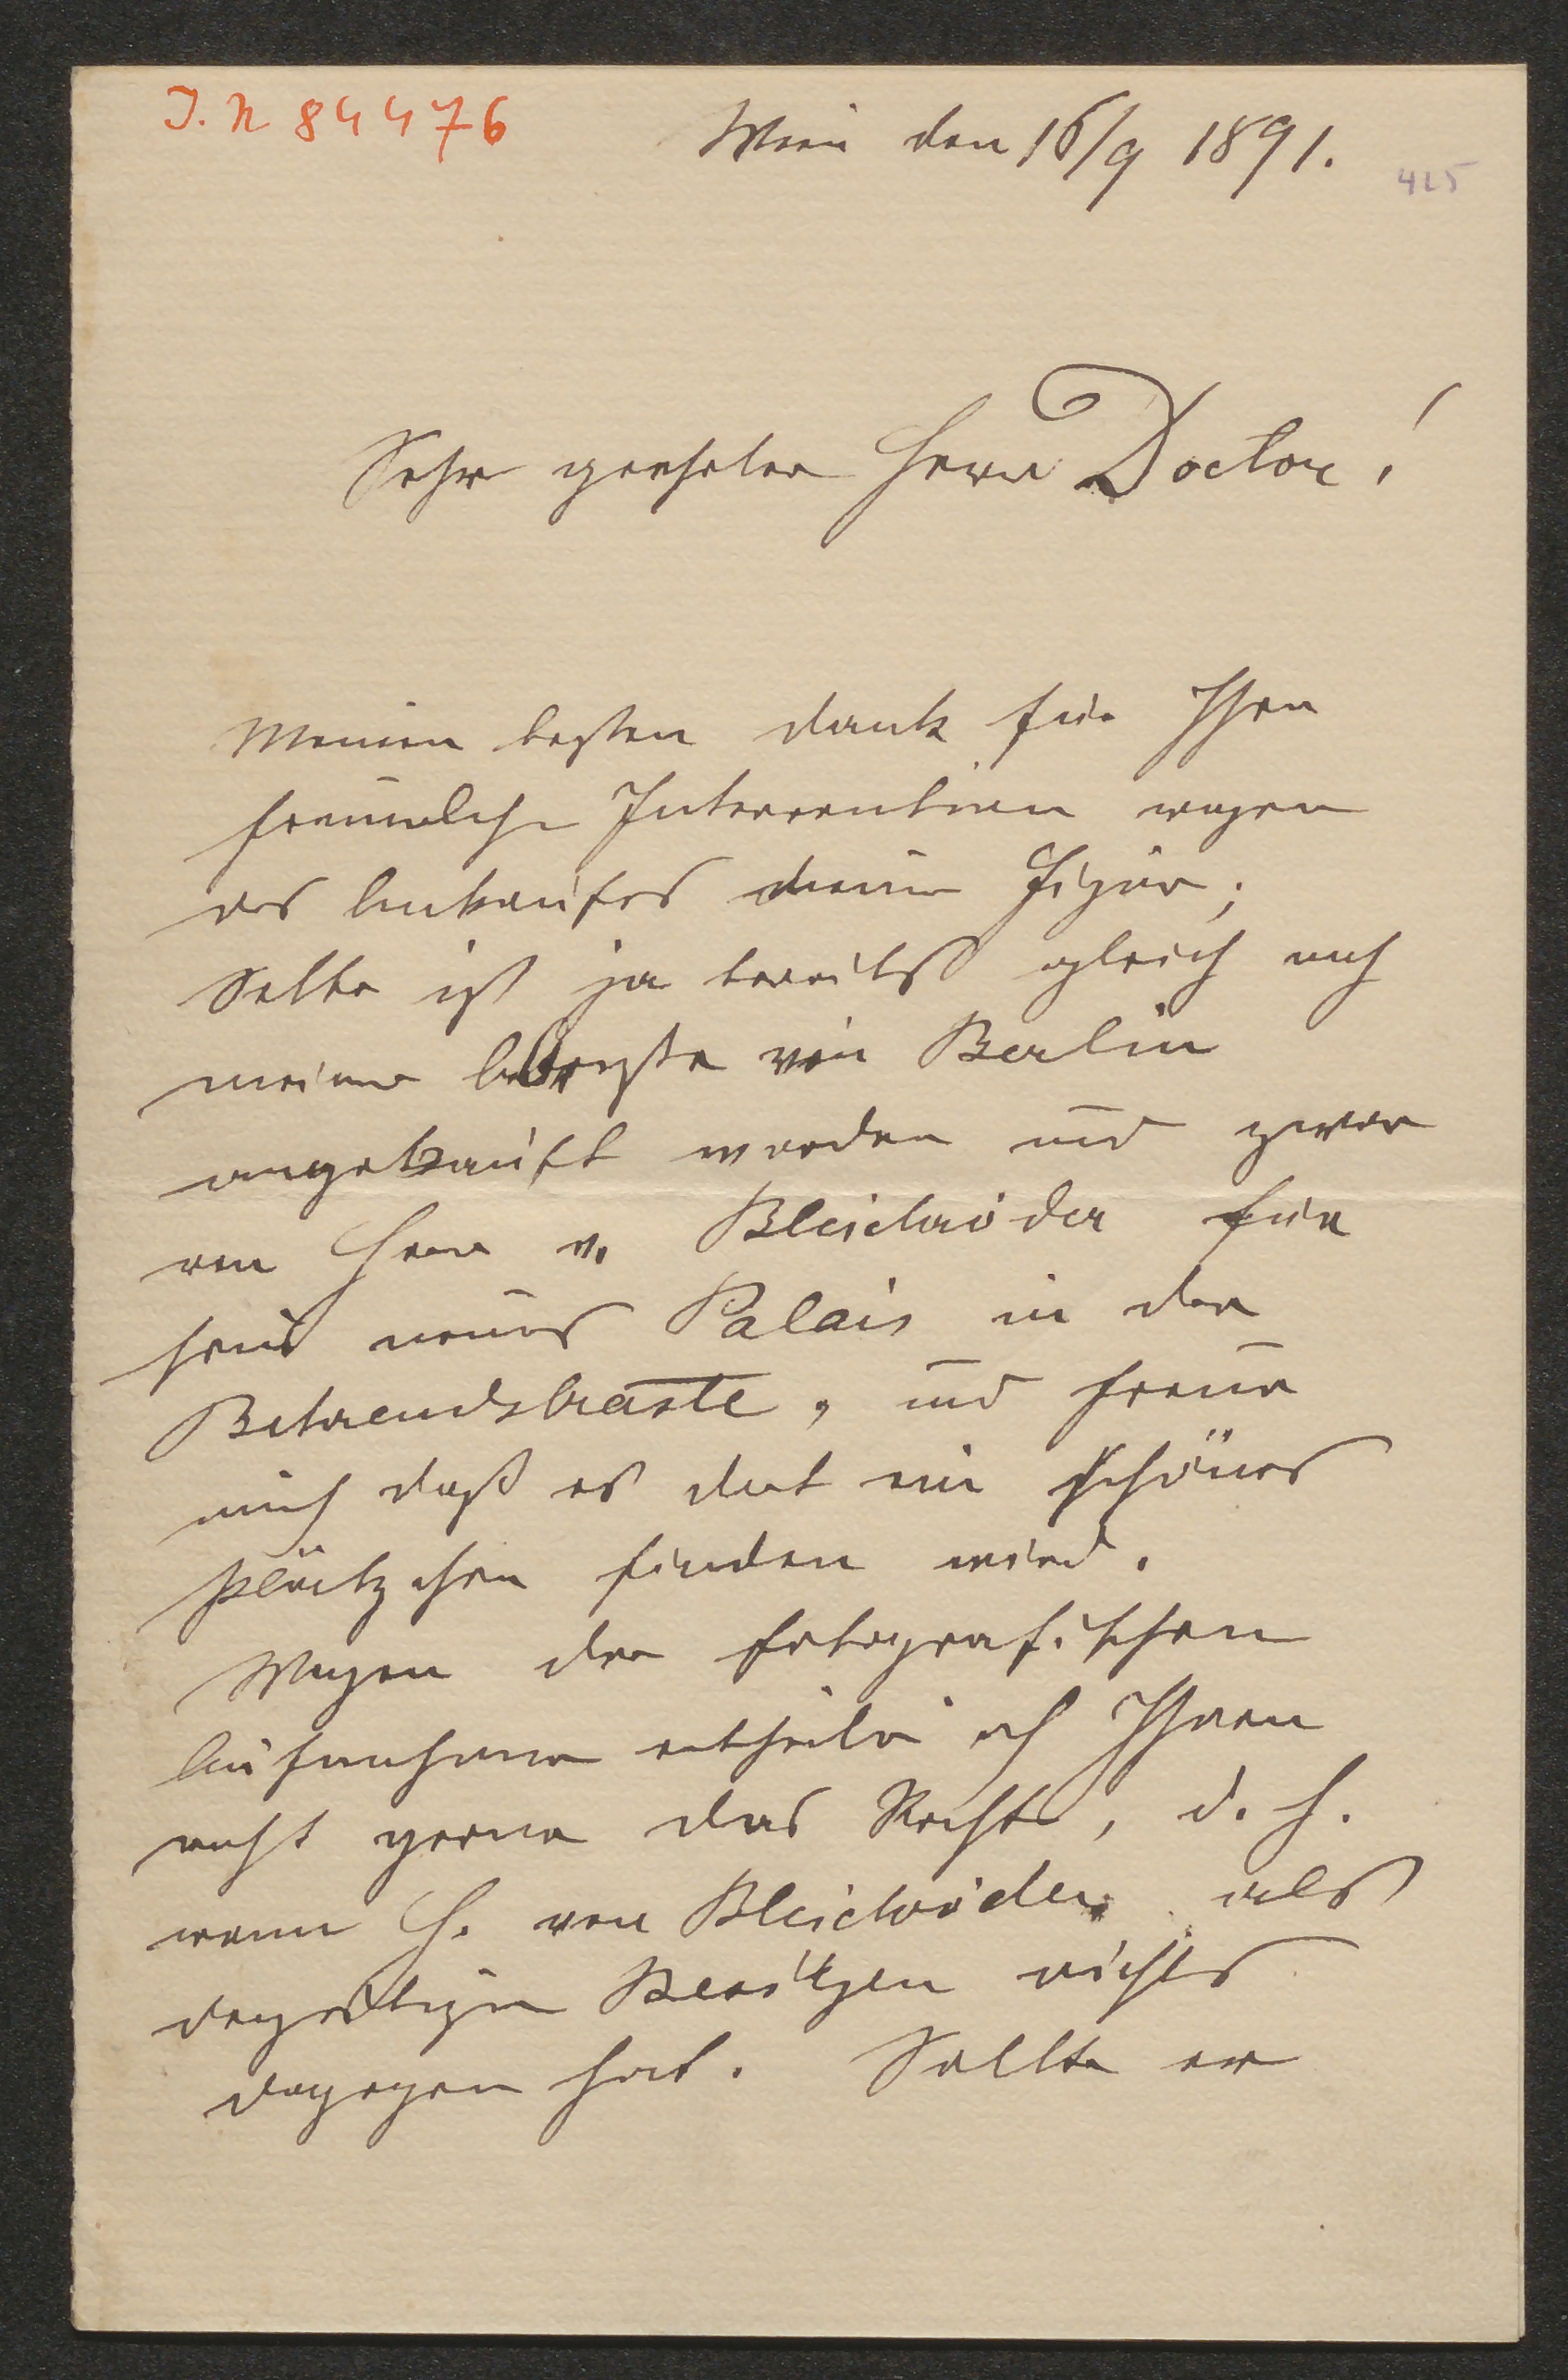 J. N 84476
Wien den 16/9 1891.
425
Sehr geehrter Herr Doctor!
Meinen besten dank für Ihre
freundliche Intervention wegen
des Ankaufes meiner Figur;
Selbe ist ja bereits gleich nach
meiner Abreise von Berlin
angekauft worden und zwar
von Herrn v. Bleichröder für
sein neues Palais in der
Behrendstraße, und freue
mich daß es dort ein schönes
Plätzchen finden wird.
Wegen der fotografischen
Aufnahme ertheile ich Ihnen
recht gerne das Recht, d. h.
wenn H. von Bleichröder als
Besitzer nichts
dagegen hat. Sollte er